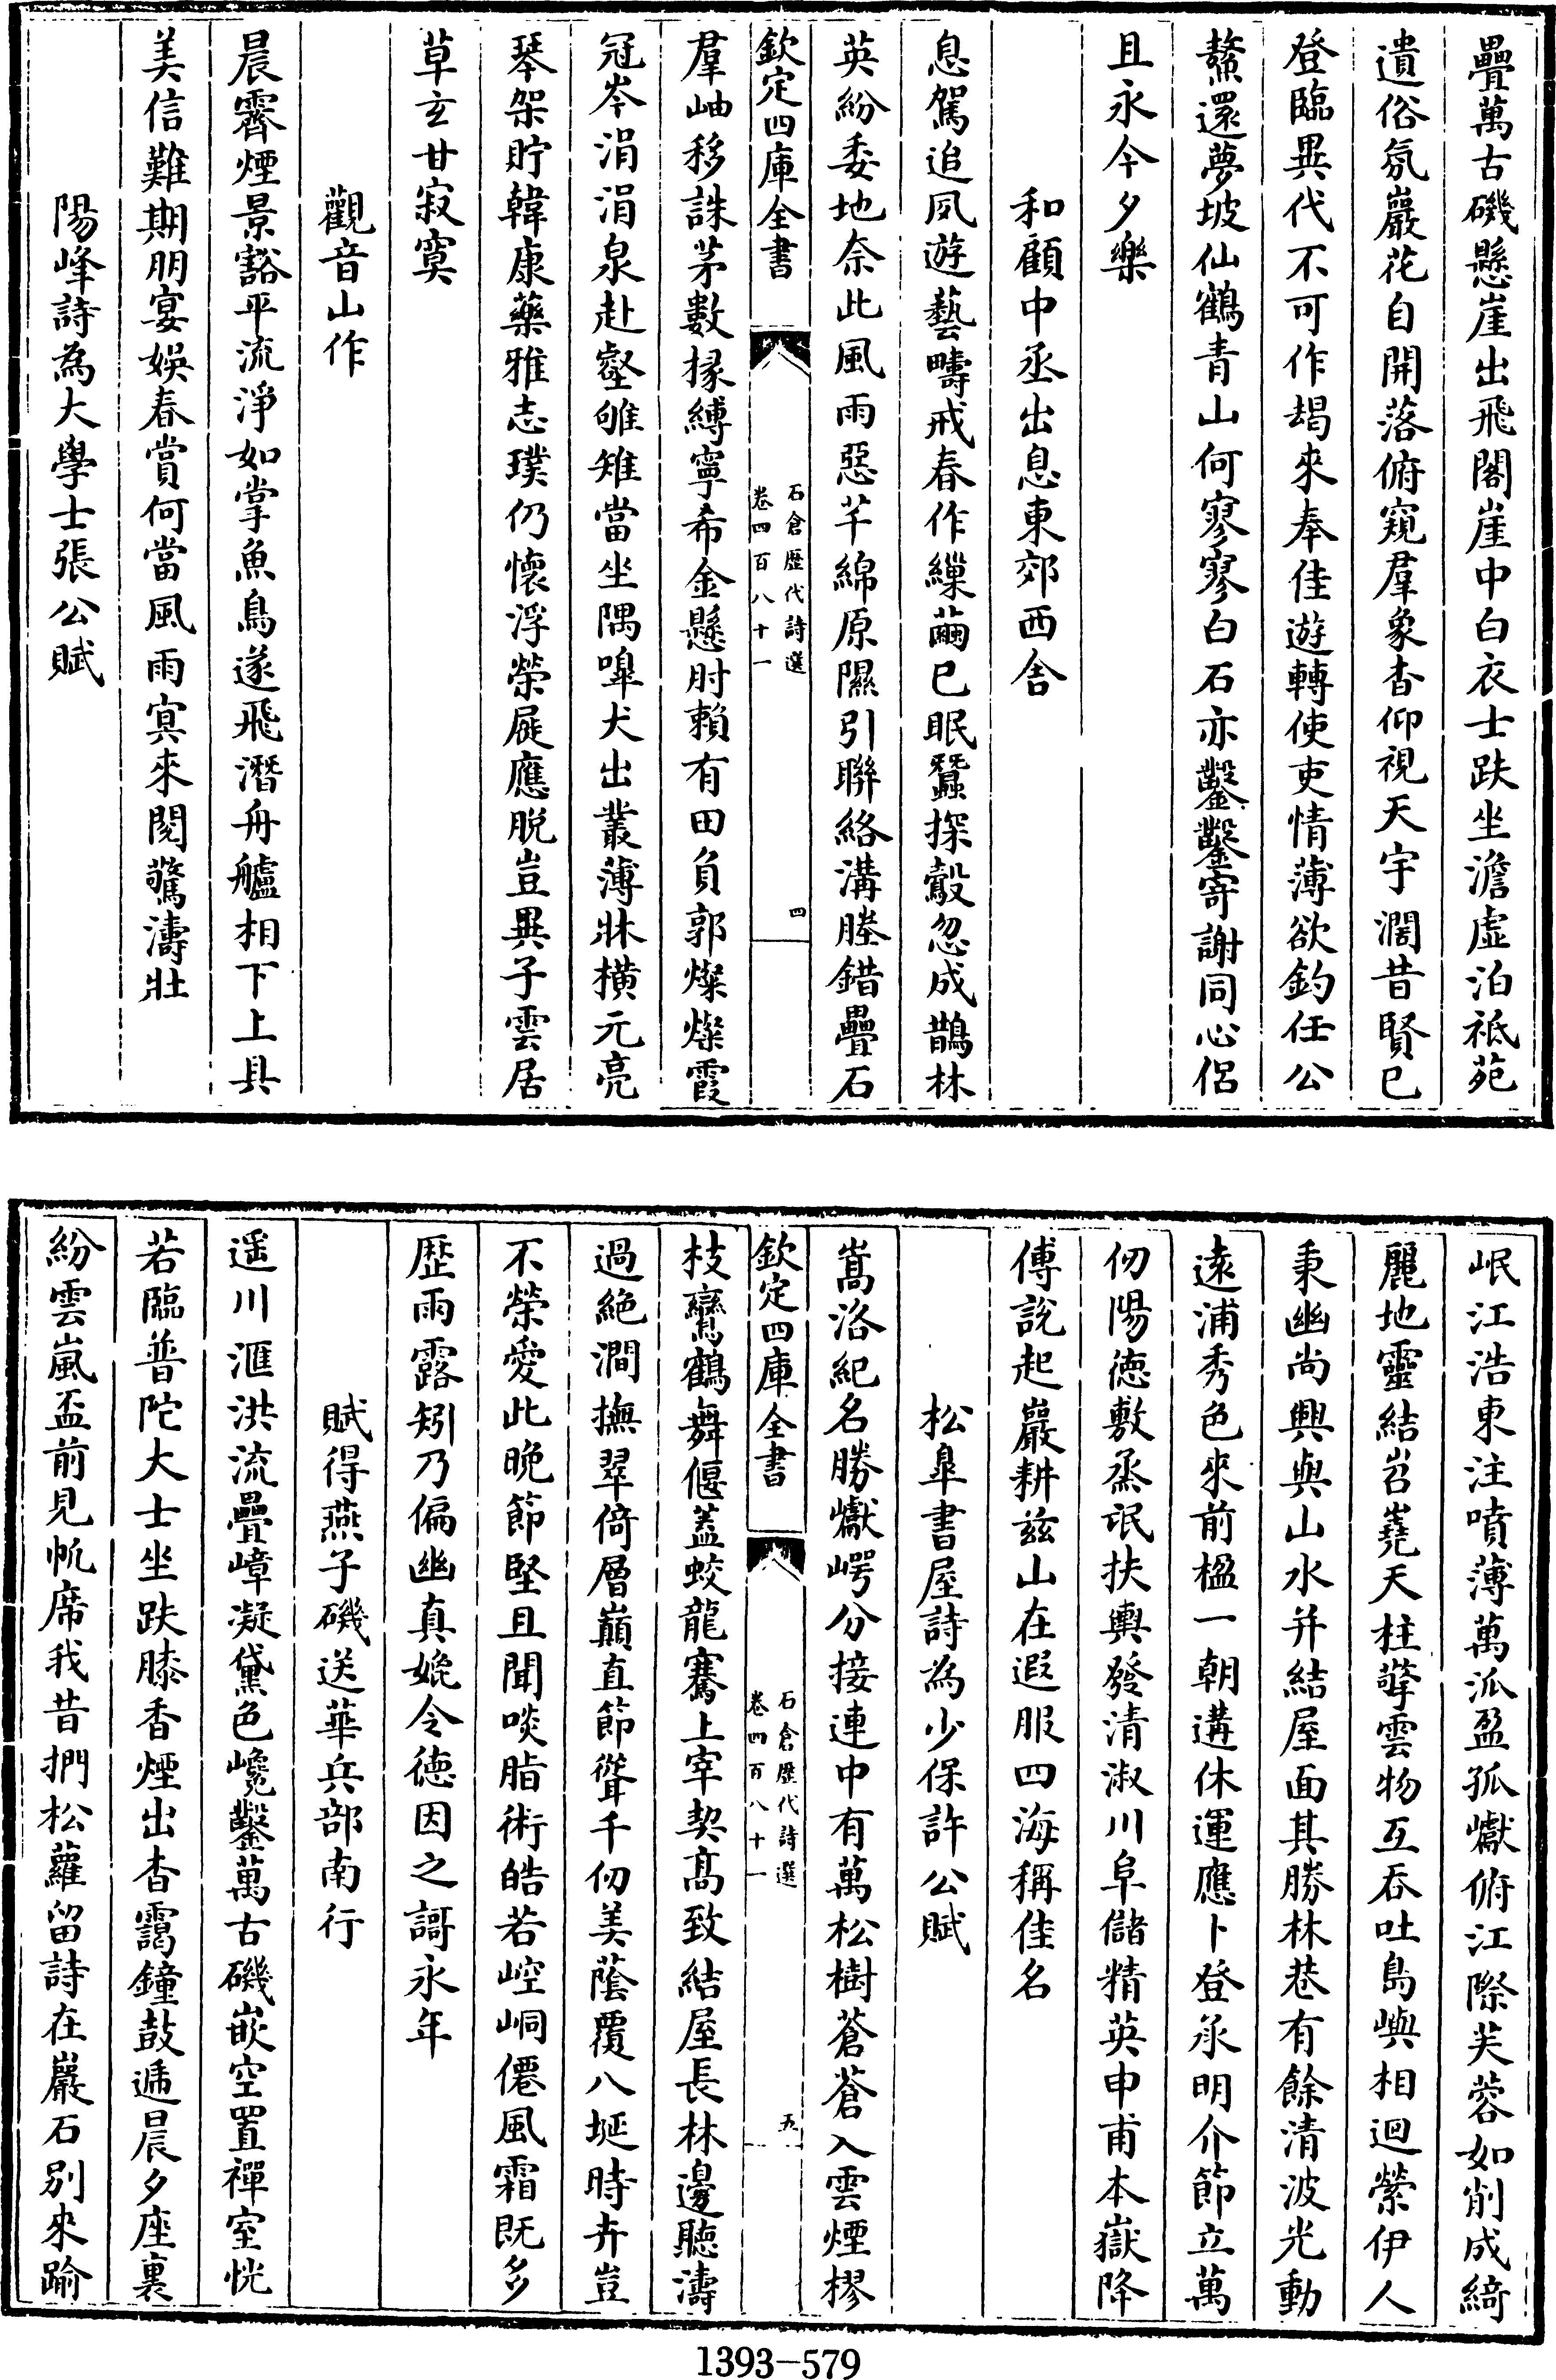 疊萬古磯懸崖出飛閣崖中白衣士趺坐澹虛泊祇苑
遺俗氛巖花自開落俯窺羣象杳仰視天宇濶昔賢已
登臨異代不可作朅來奉佳遊轉使吏情薄欲釣任公
鰲還夢坡仙鶴青山何寥寥白石亦鑿鑿寄謝同心侶
且永今夕樂
和顧中丞出息東郊西舍
息駕追夙遊藝疇戒春作繅繭已眠蠶探鷇忽成鵲林
英紛委地奈此風雨惡芊綿原隰引聯絡溝塍錯疊石
欽定四庫全書
石倉歷代詩選
卷四百八十一
四
羣岫移誅茅數椽縛寧希金懸肘賴有田負郭燦燦霞
冠岑涓涓泉赴壑雊雉當坐隅嘷犬出叢薄牀橫元亮
琴架貯韓康藥雅志璞仍懷浮榮屣應脫豈異子雲居
草玄甘寂寞
觀音山作
晨霽煙景豁平流淨如掌魚鳥遂飛潛舟艫相下上具
美信難期朋宴娛春賞何當風雨寅來閱驚濤壯
陽峰詩為大學士張公賦
岷江浩東注噴薄萬派盈孤巘俯江際芙蓉如削成綺
麗地靈結岧嶤天柱擎雲物互吞吐島嶼相迴縈伊人
秉幽尚興與山水并結屋面其勝林巷有餘清波光動
遠浦秀色來前楹一朝遘休運應卜登承明介節立萬
仞陽德敷烝氓扶輿發清淑川阜儲精英申甫本嶽降
傅說起巖耕茲山在遐服四海稱佳名
松臯書屋詩為少保許公賦
嵩洛紀名勝巘崿分接連中有萬松樹蒼蒼入雲煙樛
欽定四庫全書
石倉歷代詩選
卷四百八十一
五
枝鸞鶴舞偃蓋蛟龍騫上宰契髙致結屋長林邊聽濤
過絶澗撫翠倚層巔直節聳千仞美蔭覆八埏時卉豈
不榮愛此晚節堅且聞啖脂術皓若崆峒僊風霜既多
歷雨露矧乃偏幽真媲令德因之謌永年
賦得燕子磯送華兵部南行
遥川滙洪流疊嶂凝黛色巉鑿萬古磯嵌空置禪室恍
若臨普陀大士坐趺膝香煙出杳靄鐘鼓遞晨夕座裏
紛雲嵐盃前見帆席我昔捫松蘿留詩在巖石别來踰
1393-579